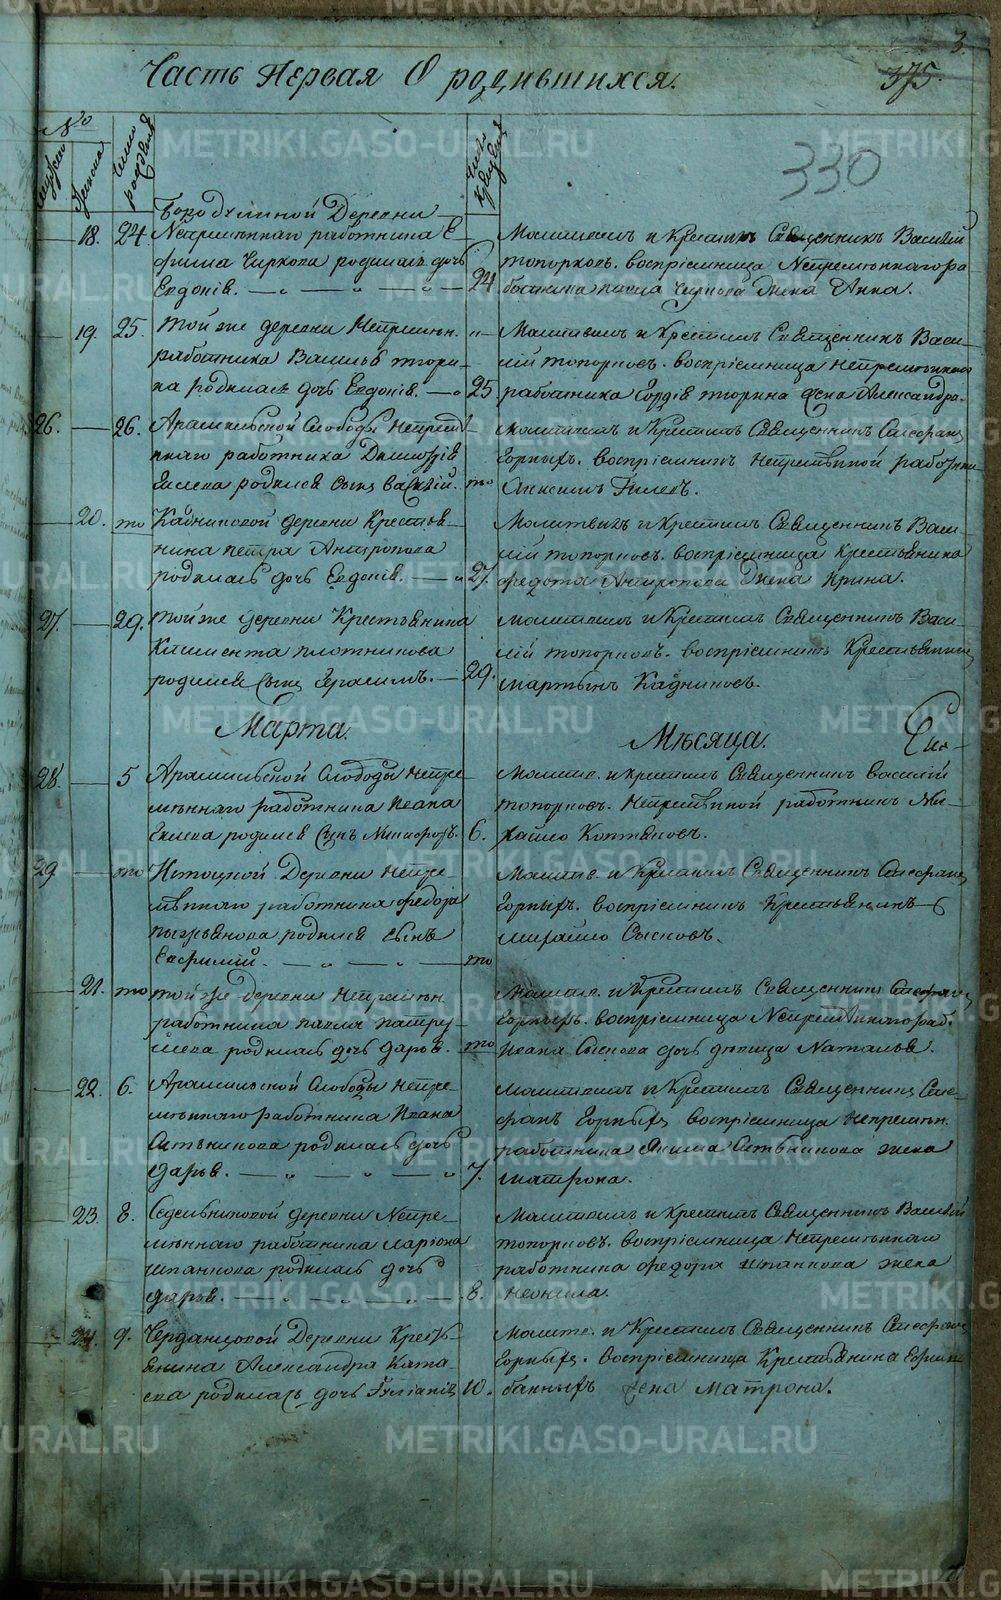 3.
375.
Часть Первая О родившихся.
330
№
Мужеска
Женска
Число рожденія
Число крещенія
Бородулиной Деревни
18. 24. Непремѣннаго работника Е-
фима Чиркова родилась дочь
Евдокія. 24
Молитвилъ и Крестилъ Священникъ Василій
топорковъ. воспріемница Непремѣннаго ра
ботника жена Анна.
19. 25. той же деревни Непремѣн.
работника Василья
родилась дочь Евдокія. 25
Молитвилъ и Крестилъ Священникъ Васи-
лій топорковъ. воспріемница Непремѣннаго
работника жена Александра.
26. 26. Арамильской Слободы Непремѣ-
ннаго работника Димитрія
родился сынъ Василій. то
Молитвилъ и Крестилъ Священникъ Стефанъ
Горныхъ. воспріемникъ Непремѣнной работникъ
Анисимъ
20. то Кадниковой деревни Крестья-
нина петра Антропова
родилась дочь Евдокія. 27.
Молитвилъ и Крестилъ Священникъ Васи-
лій топорковъ. воспріемница Крестьянина
федота Антропова жена Ирина.
27. 29. той же деревни Крестьянина
Климента плотникова
родился Сынъ Герасимъ. 29.
Молитвилъ и Крестилъ Священникъ Васи-
лій топорковъ. воспріемникъ Крестьянинъ
мартынъ Кадниковъ.
Марта. Мѣсяца.
28. 5 Арамильской Слободы Непре-
мѣннаго работника Ивана
родился Сынъ Никифоръ. 6.
Молитв. и крестилъ Священникъ Василій
топорковъ. Непремѣнной работникъ Ми-
хайло Коптяковъ.
29 то Истоцкой Деревни Непре-
мѣннаго работника федора
родился сынъ
Евфимій. то
Молитв. и Крестилъ Священникъ Стефанъ
Горныхъ. воспріемникъ Крестьянинъ
михайло Сысковъ.
21. то той же деревни Непремѣн.
работника павла патру-
шева родилась дочь дарья. то
Молитв. и Крестилъ Священникъ Стефанъ
Горныхъ. воспріемница Непремѣннаго раб.
Ивана Сыскова дочь девица Наталья.
22. 6. Арамильской Слободы Непре-
мѣннаго работника Ивана
Ситникова родилась дочь
дарья. 7.
Молитвилъ и Крестилъ Священникъ Сте-
фанъ Горныхъ воспріемница Непремѣн.
работника Ситникова жена
матрона.
23. 8. Седельниковой деревни Непре-
мѣннаго работника ларіона
шпанкова родилась дочь
дарья. 8.
Молитвилъ и Крестилъ Священникъ Василій
топорковъ. воспріемница Непремѣннаго
работника федора шпанкова жена
Неонила.
24. 9. Черданцовой Деревни Кресть-
янина Александра Ката-
ева родилась дочь Іуліанія 10.
Молитв. и Крестилъ Священникъ Стефанъ
Горныхъ. воспріемница Крестьянина
банныхъ жена Матрона.
METRIKI.GASO-URAL.RU